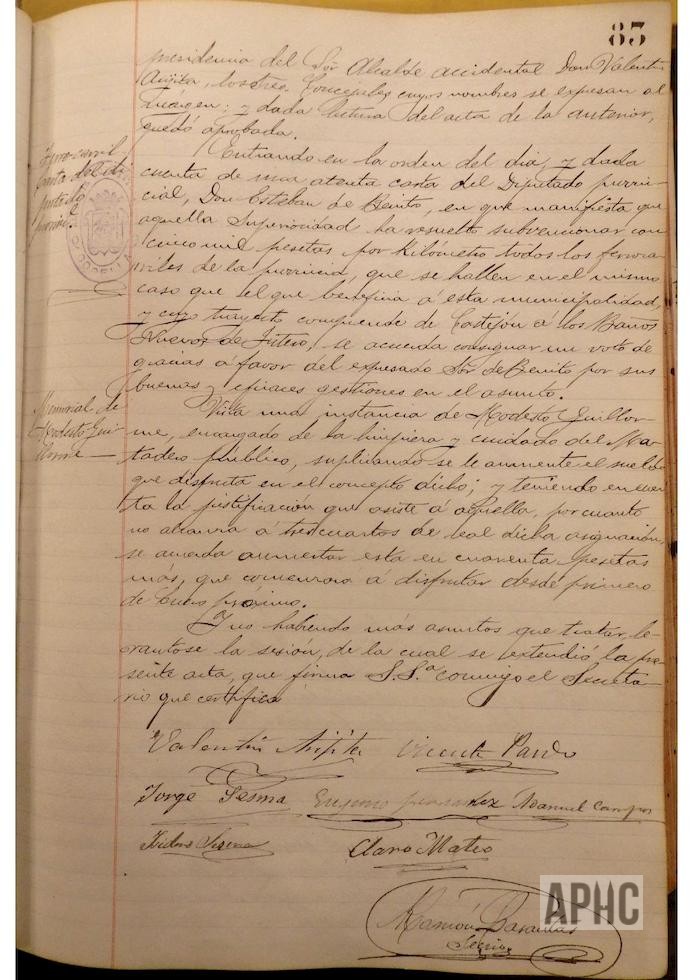 85
presidencia del Sor Alcalde accidental Don Valentin
Arijita, los tres Concejales cuyos nombres se expresan al
márgen: y dada lectura del acta de la anterior,
quedó aprobada.
Ferro-carril
Carta del Di
putado
Entrando en la orden del dia, y dada
cuenta de una atenta carta del Diputado provin-
cial, Don Esteban de Benito, en que manifiesta que
aquella Superioridad ha resuelto subvencionar con
cinco mil pesetas por Kilómetro todos los ferroca-
rriles de la provincia, que se hallen en el mismo
caso que el que beneficia á esta municipalidad,
y cuyo trayecto comprende de Castejón á los Baños
Nuevos de Fitero, se acuerda consignar un voto de
gracias á favor del expresado Sor de Benito por sus
buenas y eficaces gestiones en el asunto.
Memorial de
Modesto Gui-
llorme
Vista una instancia de Modesto Guillor-
me, encargado de la limpieza y cuidado del Ma-
tadero público, suplicando se le aumente el sueldo
que disfruta en el concepto dicho; y teniendo en cuen-
ta la justificación que asiste á aquella, por cuanto
no alcanza á tres cuartos de real dicha asignación,
se acuerda aumentar esta en cuarenta pesetas
más, que comenzará á disfrutar desde primero
de Enero próximo.
Y no habiendo más asuntos que tratar, le-
vantose la sesión, de la cual se extendió la pre-
sente acta, que firma S.Sª conmigo el Secreta-
rio que certifica
Valentín Arijita Vicente Pardo
Jorge Sesma Eugenio Fernandez Manuel Campos
Isidoro
Claro Mateo
Ramón
Serio
APHC